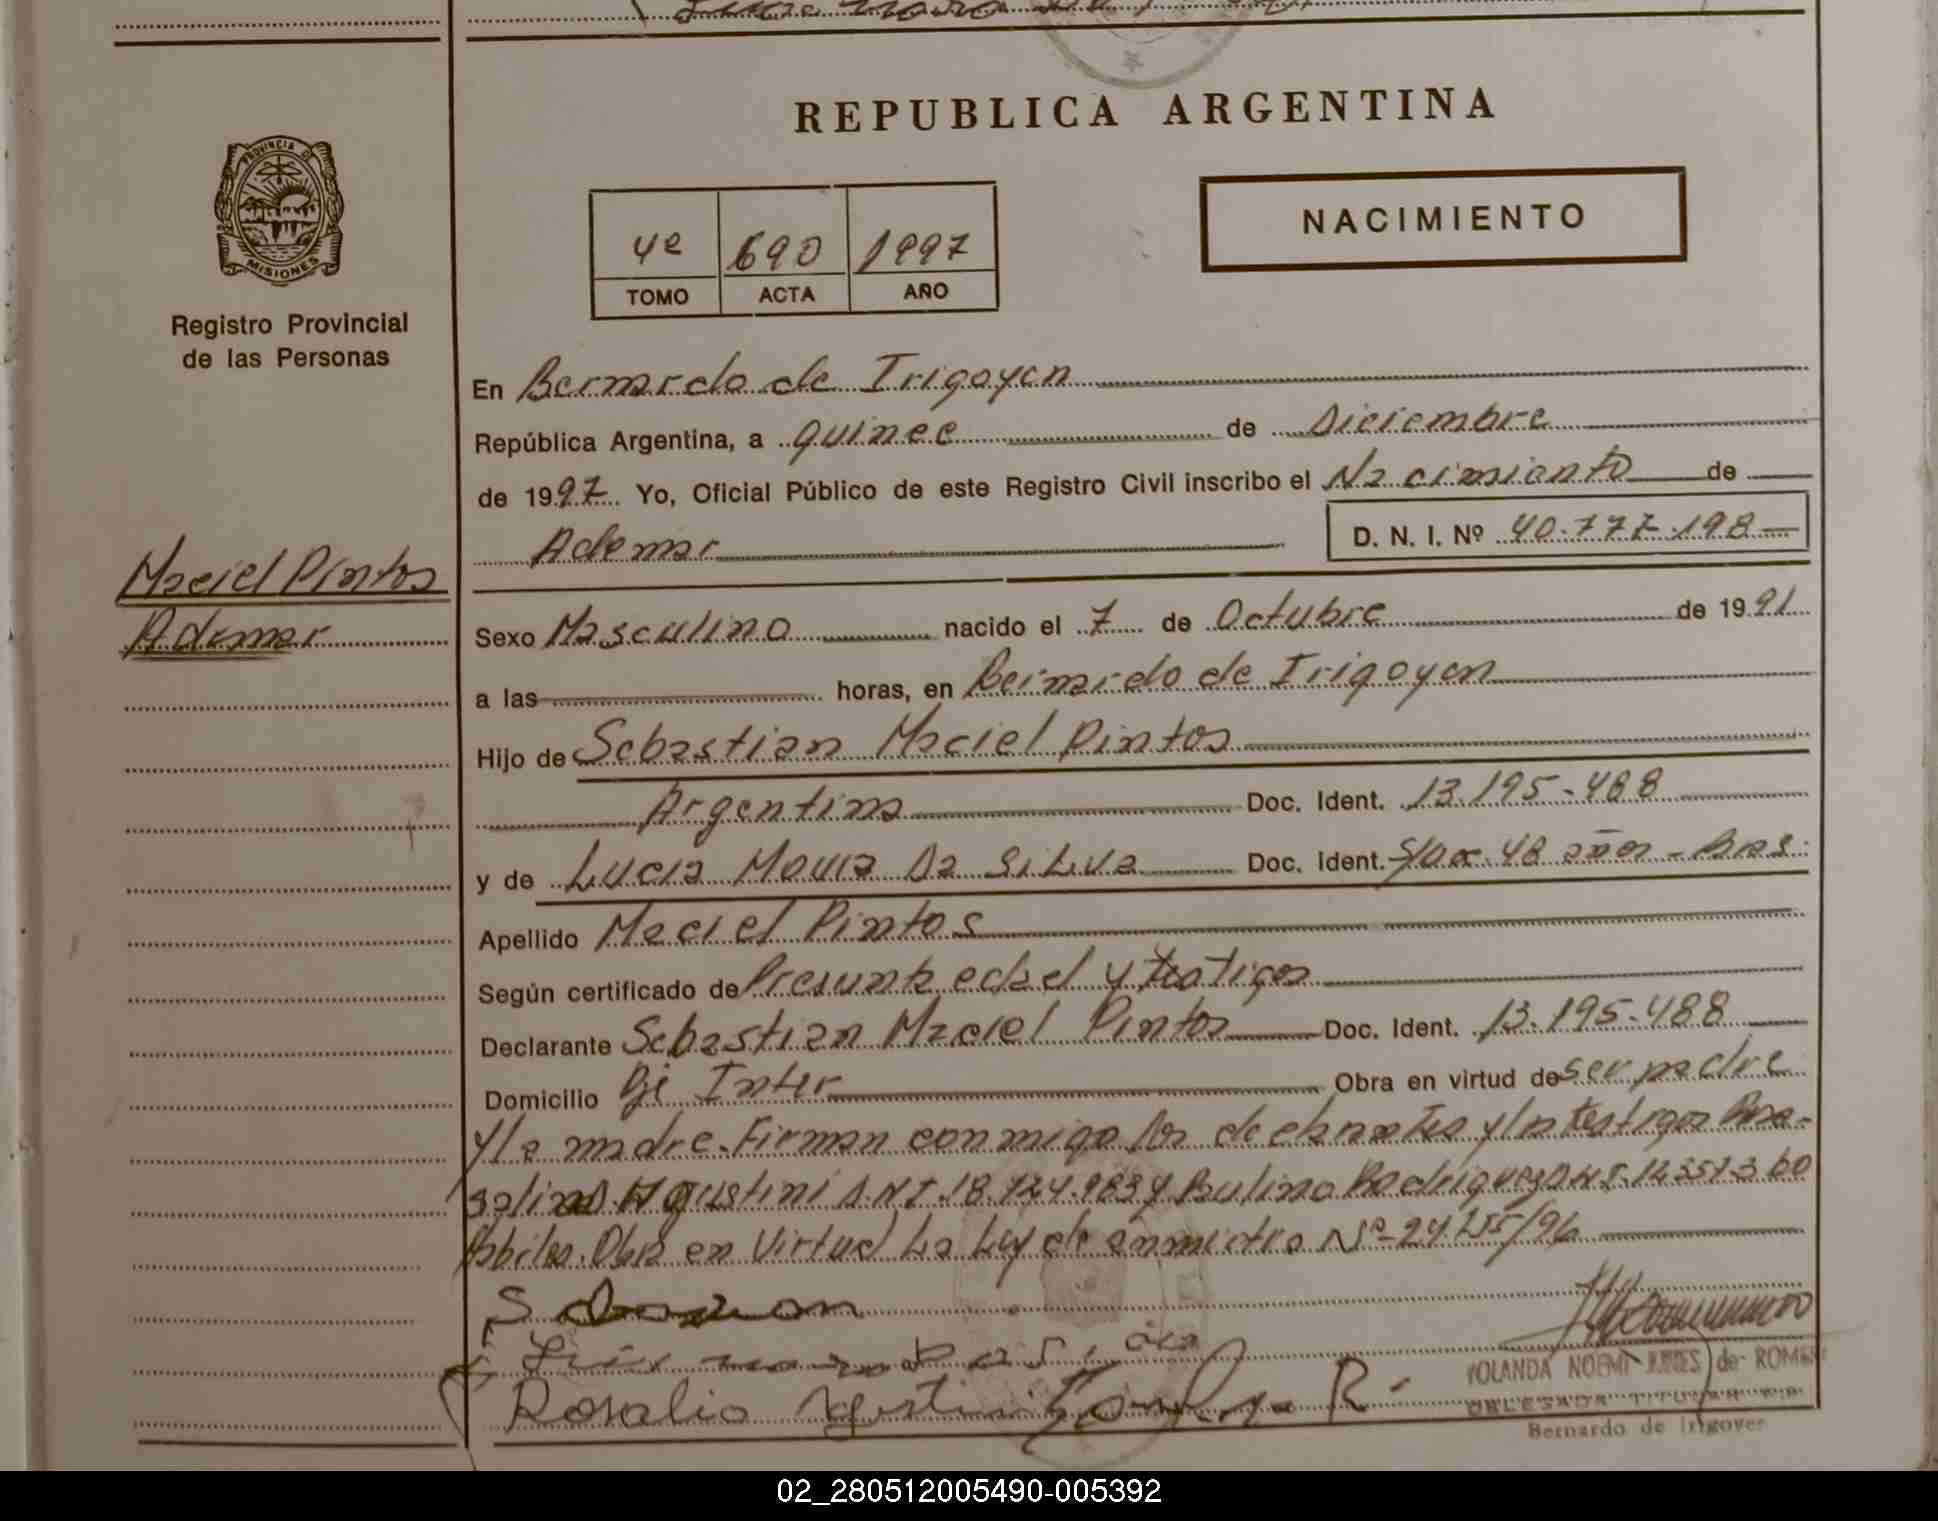 REPUBLICA ARGENTINA
PROVINCIA DE
MISIONES
Registro Provincial
de las Personas
4º 690 1997
TOMO ACTA AÑO
NACIMIENTO
Maciel Pintos
Ademar
En Bernardo de Irigoyen
República Argentina, a quince de Diciembre
de 1997 Yo, Oficial Público de este Registro Civil inscribo el Nacimiento de
Ademar D. N. I. Nº 40.777.198
Sexo Masculino nacido el 7 de Octubre de 1991
a las horas, en Bernardo de Irigoyen
Hijo de Sebastian Maciel Pintos
Argentina Doc. Ident. 13.195-488
y de Lucia Doc. Ident. 48 años - Bras.
Apellido Maciel Pintos
Según certificado de Presunta edad y testigos
Declarante Sebastian Maciel Pintos Doc. Ident. 13.195-488
Domicilio Pje Inter Obra en virtud de ser padre
y la madre. Firman conmigo los y los testigos Rosa-
Agustini D.N.I. 18.724.983 y Rodriguez D.N.I.
Obra en Virtud La Ley de Nº 24.755/96
YOLANDA NOEMI de ROMERO
DELEGADA TITULAR
Bernardo de Irigoyen
02_280512005490-005392